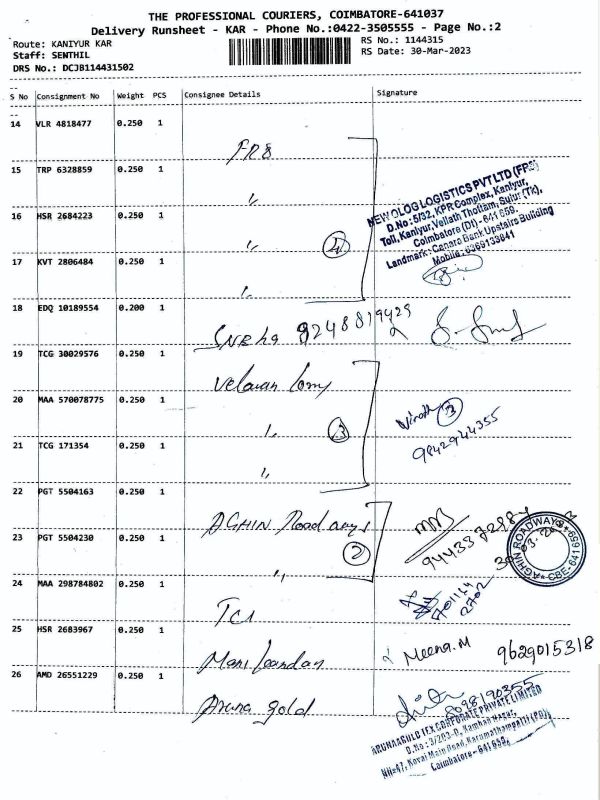 THE PROFESSIONAL COURIERS, COIMBATORE-641037
Delivery Runsheet - KAR - Phone No.:0422-3505555 - Page No.:2
Route: KANIYUR KAR
RS No.: 1144315
Staff: SENTHIL
RS Date: 30-Mar-2023
DRS No.: DCJB114431502
S No Consignment No Weight PCS Consignee Details Signature
14 VLR 4818477 0.250 1
FR8
15 TRP 6328859 0.250 1
"
NEW OLOG LOGISTICS PVT LTD (FR8)
D.No : 5/32, KPR Complex, Kaniyur,
Toll, Kaniyur, Vellath Thottam, Sulur (Tk),
Coimbatore (Dt) - 641 659.
Landmark : Canara Bank Upstairs Building
Mobile: 6369133941
16 HSR 2684223 0.250 1
" 4
17 KVT 2806484 0.250 1
"
18 EDQ 10189554 0.200 1
Sneha 9248819429
19 TCG 30029576 0.250 1
Velavan lorry
20 MAA 570078775 0.250 1
" 3
3
9842944355
21 TCG 171354 0.250 1
"
22 PGT 5504163 0.250 1
AGHIN Roadways
23 PGT 5504230 0.250 1
" 2
AGHIN ROADWAYS CBE-641659
24 MAA 298784802 0.250 1
TCI
25 HSR 2683967 0.250 1
Manikandan
Meena.M 9629015318
26 AMD 26551229 0.250 1
Aruna gold
8098190355
ARUNAAGOLD TEX CORPORATE PRIVATE LIMITED
Coimbatore - 641 659.